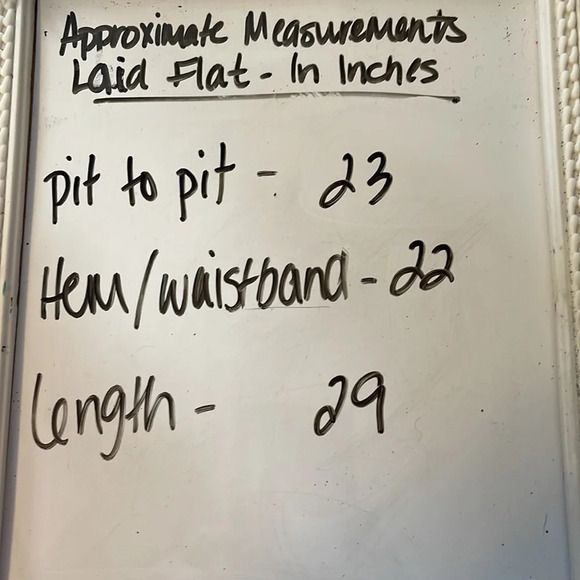 Approximate Measurements
Laid Flat - In Inches
pit to pit - 23
Hem/waistband - 22
length - 29